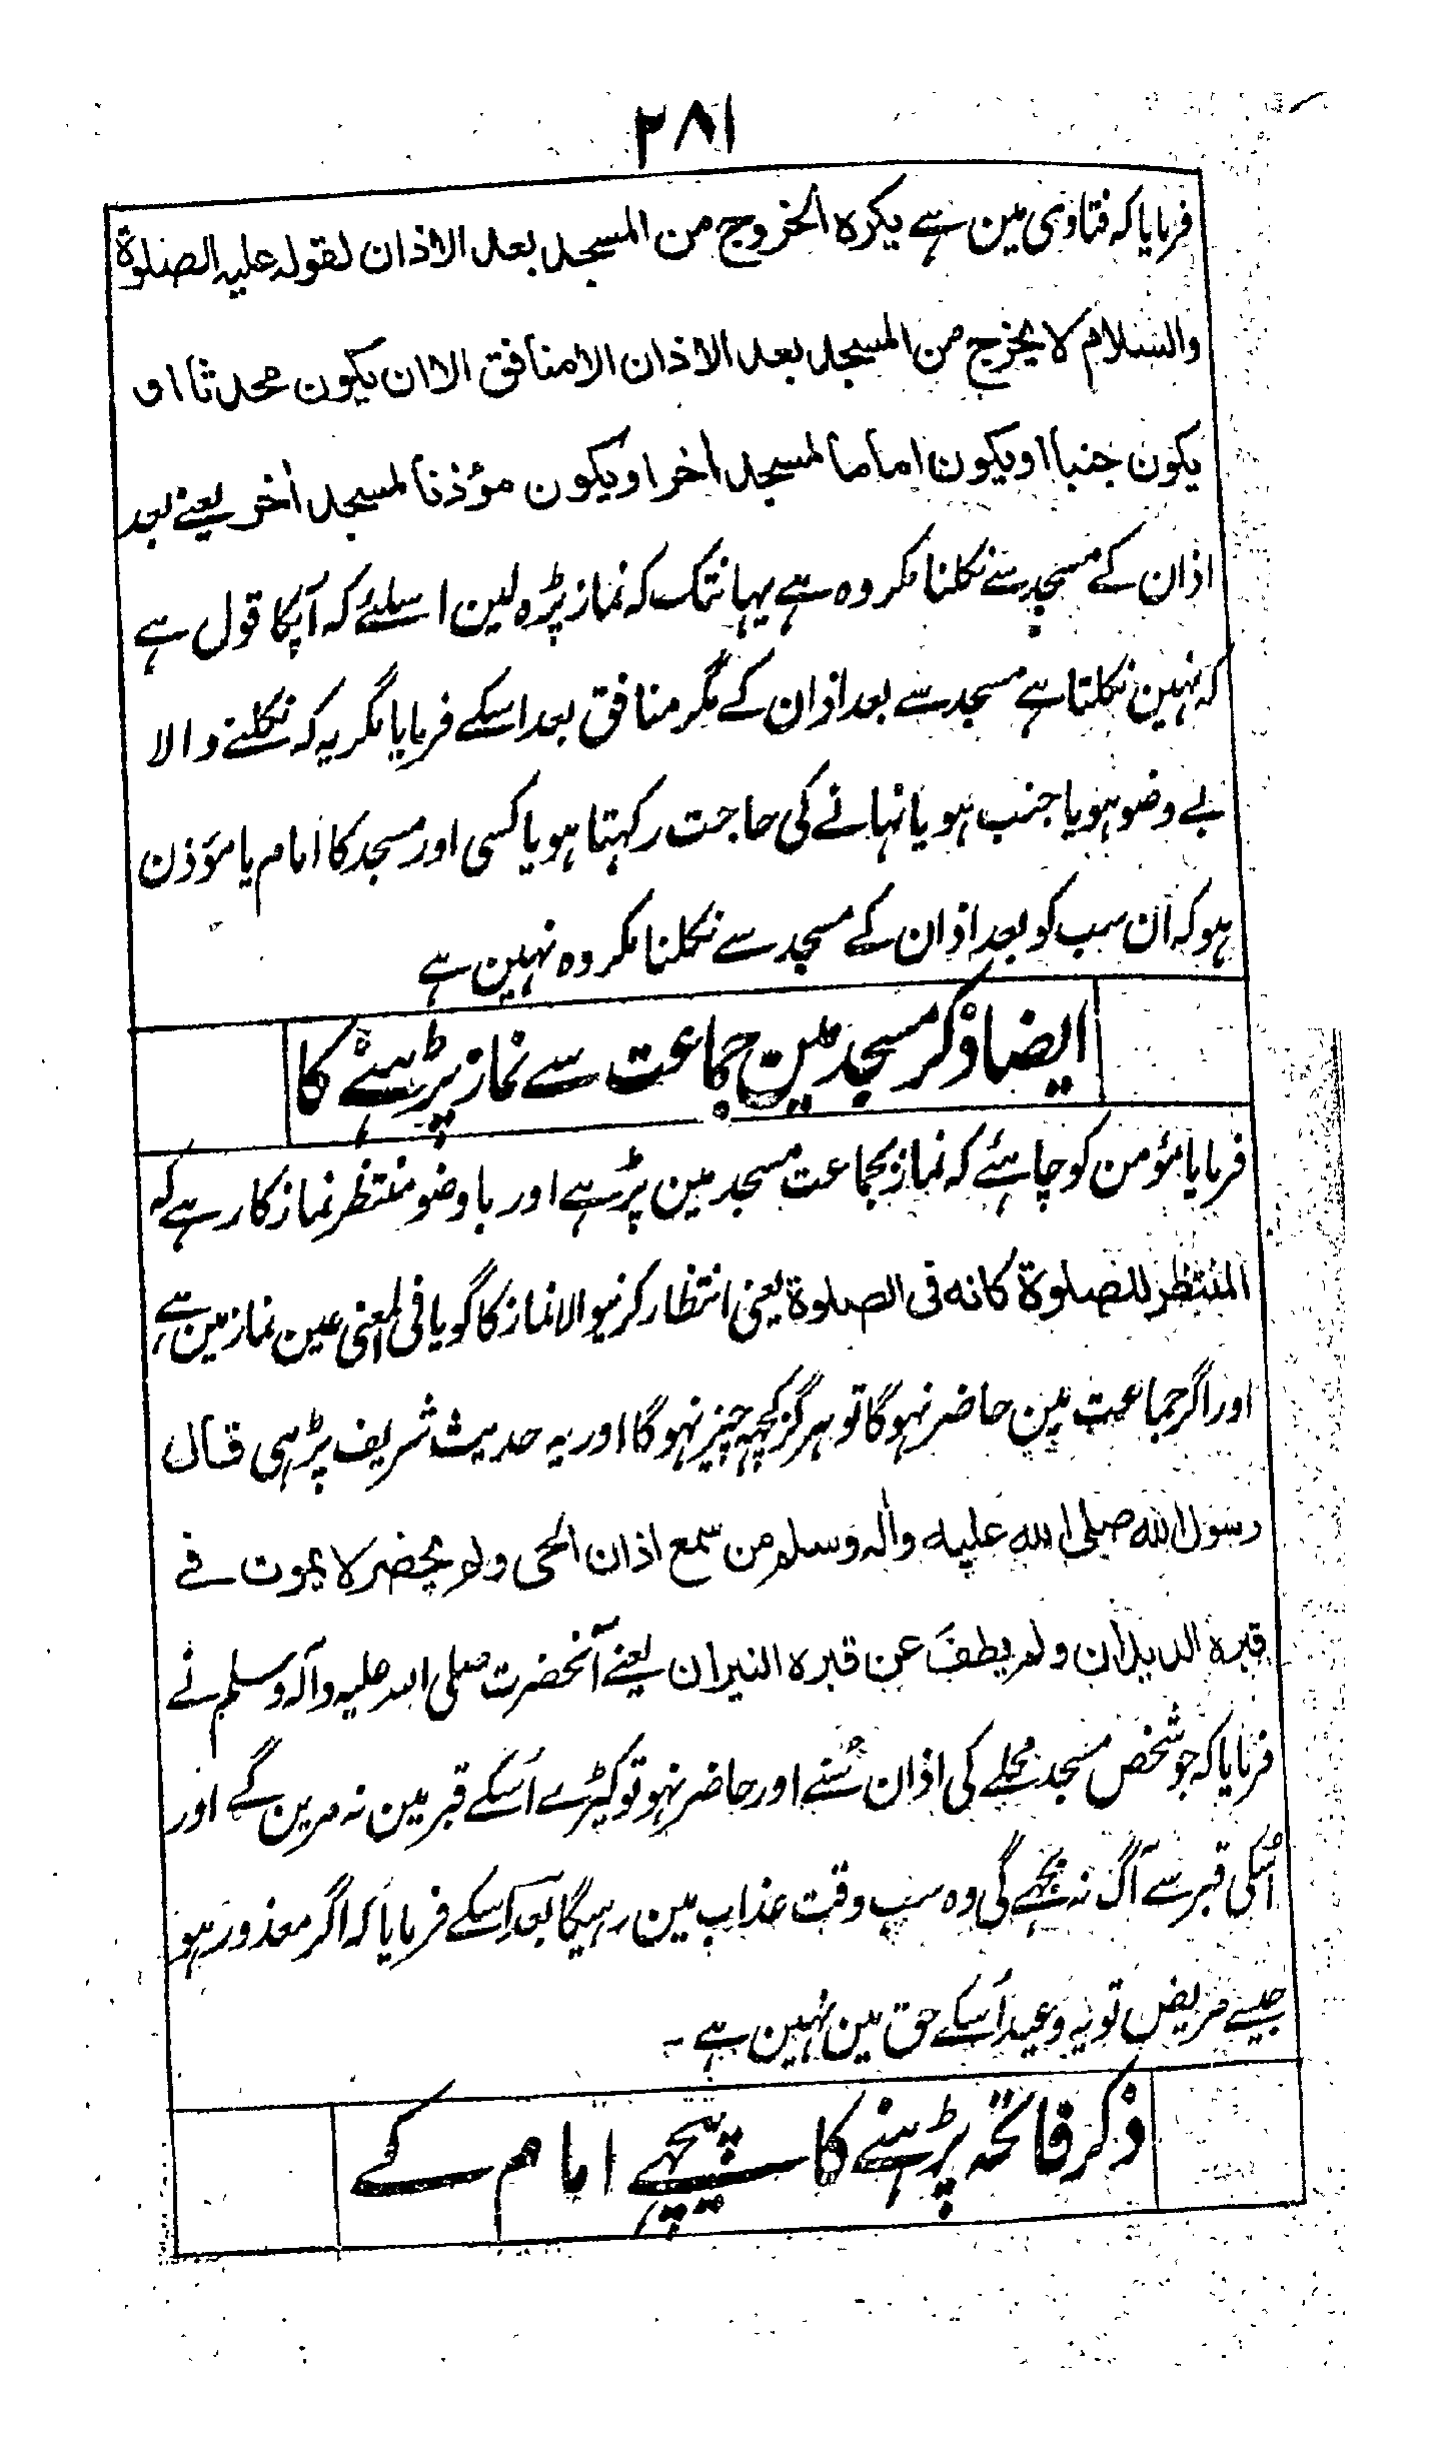 ۲۸۱
فرمایا کہ فتاوی مین ہے یکرہ الخروج من المسجد بعد الاذان لقولہ علیہ الصلوۃ
والسلام لا یخرج من المسجد بعد الاذان الا منافق الا ان یکون محدثا او
یکون جنبا او یکون اماما لمسجد اٰخر او یکون مؤذنا لمسجد اٰخر یعنے بعد
اذان کے مسجد سے نکلنا مکروہ ہے یہانتک کہ نماز پڑہ لین اسلئے کہ آپکا قول ہے
کہ نہین نکلتا ہے مسجد سے بعد اذان کے مگر منافق بعد اسکے فرمایا مگر یہ کہ نکلنے والا
بے وضو ہو یا جنب ہو یا نہانے کی حاجت رکہتا ہو یا کسی اور مسجد کا امام یا مؤذن
ہو کہ ان سب کو بعد اذان کے مسجد سے نکلنا مکروہ نہین ہے
ایضا ذکر مسجد مین جماعت سے نماز پڑہنے کا
فرمایا مؤمن کو چاہئے کہ نماز بجماعت مسجد مین پڑہے اور باوضو منتظر نماز کا رہے کہ
المنتظر للصلوۃ کانہ فی الصلوۃ یعنی انتظار کرنیوالا نماز کا گویا فی المعنی عین نماز مین ہے
اور اگر جماعت مین حاضر نہوگا تو ہرگز کچہہ چیز نہوگا اور یہ حدیث شریف پڑہی قال
رسول اللہ صلی اللہ علیہ واٰلہ وسلم من سمع اذان الحی ولم یحضر لا یموت فے
قبرہ الدیدان ولم یطف عن قبرہ النیران یعنے آنحضرت صلی اللہ علیہ وآلہ وسلم نے
فرمایا کہ جو شخص مسجد محلے کی اذان سُنے اور حاضر نہو تو کیڑے اُسکے قبر مین نہ مرین گے اور
اُسکی قبر سے آگ نہ بجہے گی وہ سب وقت عذاب مین رہیگا بعد اسکے فرمایا کہ اگر معذور ہو
جیسے مریض تو یہ وعید اُسکے حق مین نہین ہے ۔
ذکر فاتحہ پڑہنے کا پیچہے امام کے